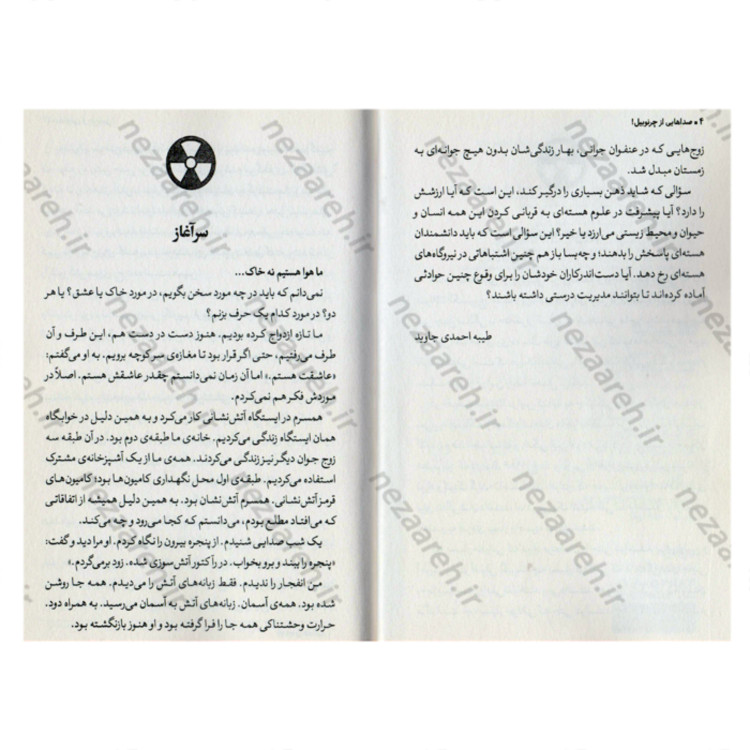 ۴ • صداهایی از چرنوبیل!
زوج‌هایی که در عنفوان جوانی، بهار زندگی‌شان بدون هیچ جوانه‌ای به
زمستان مبدل شد.
سؤالی که شاید ذهن بسیاری را درگیر کند، این است که آیا ارزشش
را دارد؟ آیا پیشرفت در علوم هسته‌ای به قربانی کردن این همه انسان و
حیوان و محیط زیستی می‌ارزد یا خیر؟ این سؤالی است که باید دانشمندان
هسته‌ای پاسخش را بدهند؛ و چه‌بسا باز هم چنین اشتباهاتی در نیروگاه‌های
هسته‌ای رخ دهد. آیا دست‌اندرکاران خودشان را برای وقوع چنین حوادثی
آماده کرده‌اند تا بتوانند مدیریت درستی داشته باشند؟
طیبه احمدی جاوید
سرآغاز
ما هوا هستیم نه خاک...
نمی‌دانم که باید در چه مورد سخن بگویم، در مورد خاک یا عشق؟ یا هر
دو؟ در مورد کدام یک حرف بزنم؟
ما تازه ازدواج کرده بودیم. هنوز دست در دست هم، این طرف و آن
طرف می‌رفتیم، حتی اگر قرار بود تا مغازه‌ی سر کوچه برویم. به او می‌گفتم:
«عاشقت هستم.» اما آن زمان نمی‌دانستم چقدر عاشقش هستم. اصلاً در
موردش فکر هم نمی‌کردم.
همسرم در ایستگاه آتش‌نشانی کار می‌کرد و به همین دلیل در خوابگاه
همان ایستگاه زندگی می‌کردیم. خانه‌ی ما طبقه‌ی دوم بود. در آن طبقه سه
زوج جوان دیگر نیز زندگی می‌کردند. همه‌ی ما از یک آشپزخانه‌ی مشترک
استفاده می‌کردیم. طبقه‌ی اول محل نگهداری کامیون‌ها بود؛ کامیون‌های
قرمز آتش‌نشانی. همسرم آتش‌نشان بود. به همین دلیل همیشه از اتفاقاتی
که می‌افتاد مطلع بودم، می‌دانستم که کجا می‌رود و چه می‌کند.
یک شب صدایی شنیدم. از پنجره بیرون را نگاه کردم. او مرا دید و گفت:
«پنجره را ببند و برو بخواب. در رآکتور آتش‌سوزی شده. زود برمی‌گردم.»
من انفجار را ندیدم. فقط زبانه‌های آتش را می‌دیدم. همه جا روشن
شده بود. همه‌ی آسمان. زبانه‌های آتش به آسمان می‌رسید. به همراه دود.
حرارت وحشتناکی همه جا را فرا گرفته بود و او هنوز بازنگشته بود.
nezaareh.ir
nezaareh.ir
nezaareh.ir
nezaareh.ir
nezaareh.ir
nezaareh.ir
nezaareh.ir
nezaareh.ir